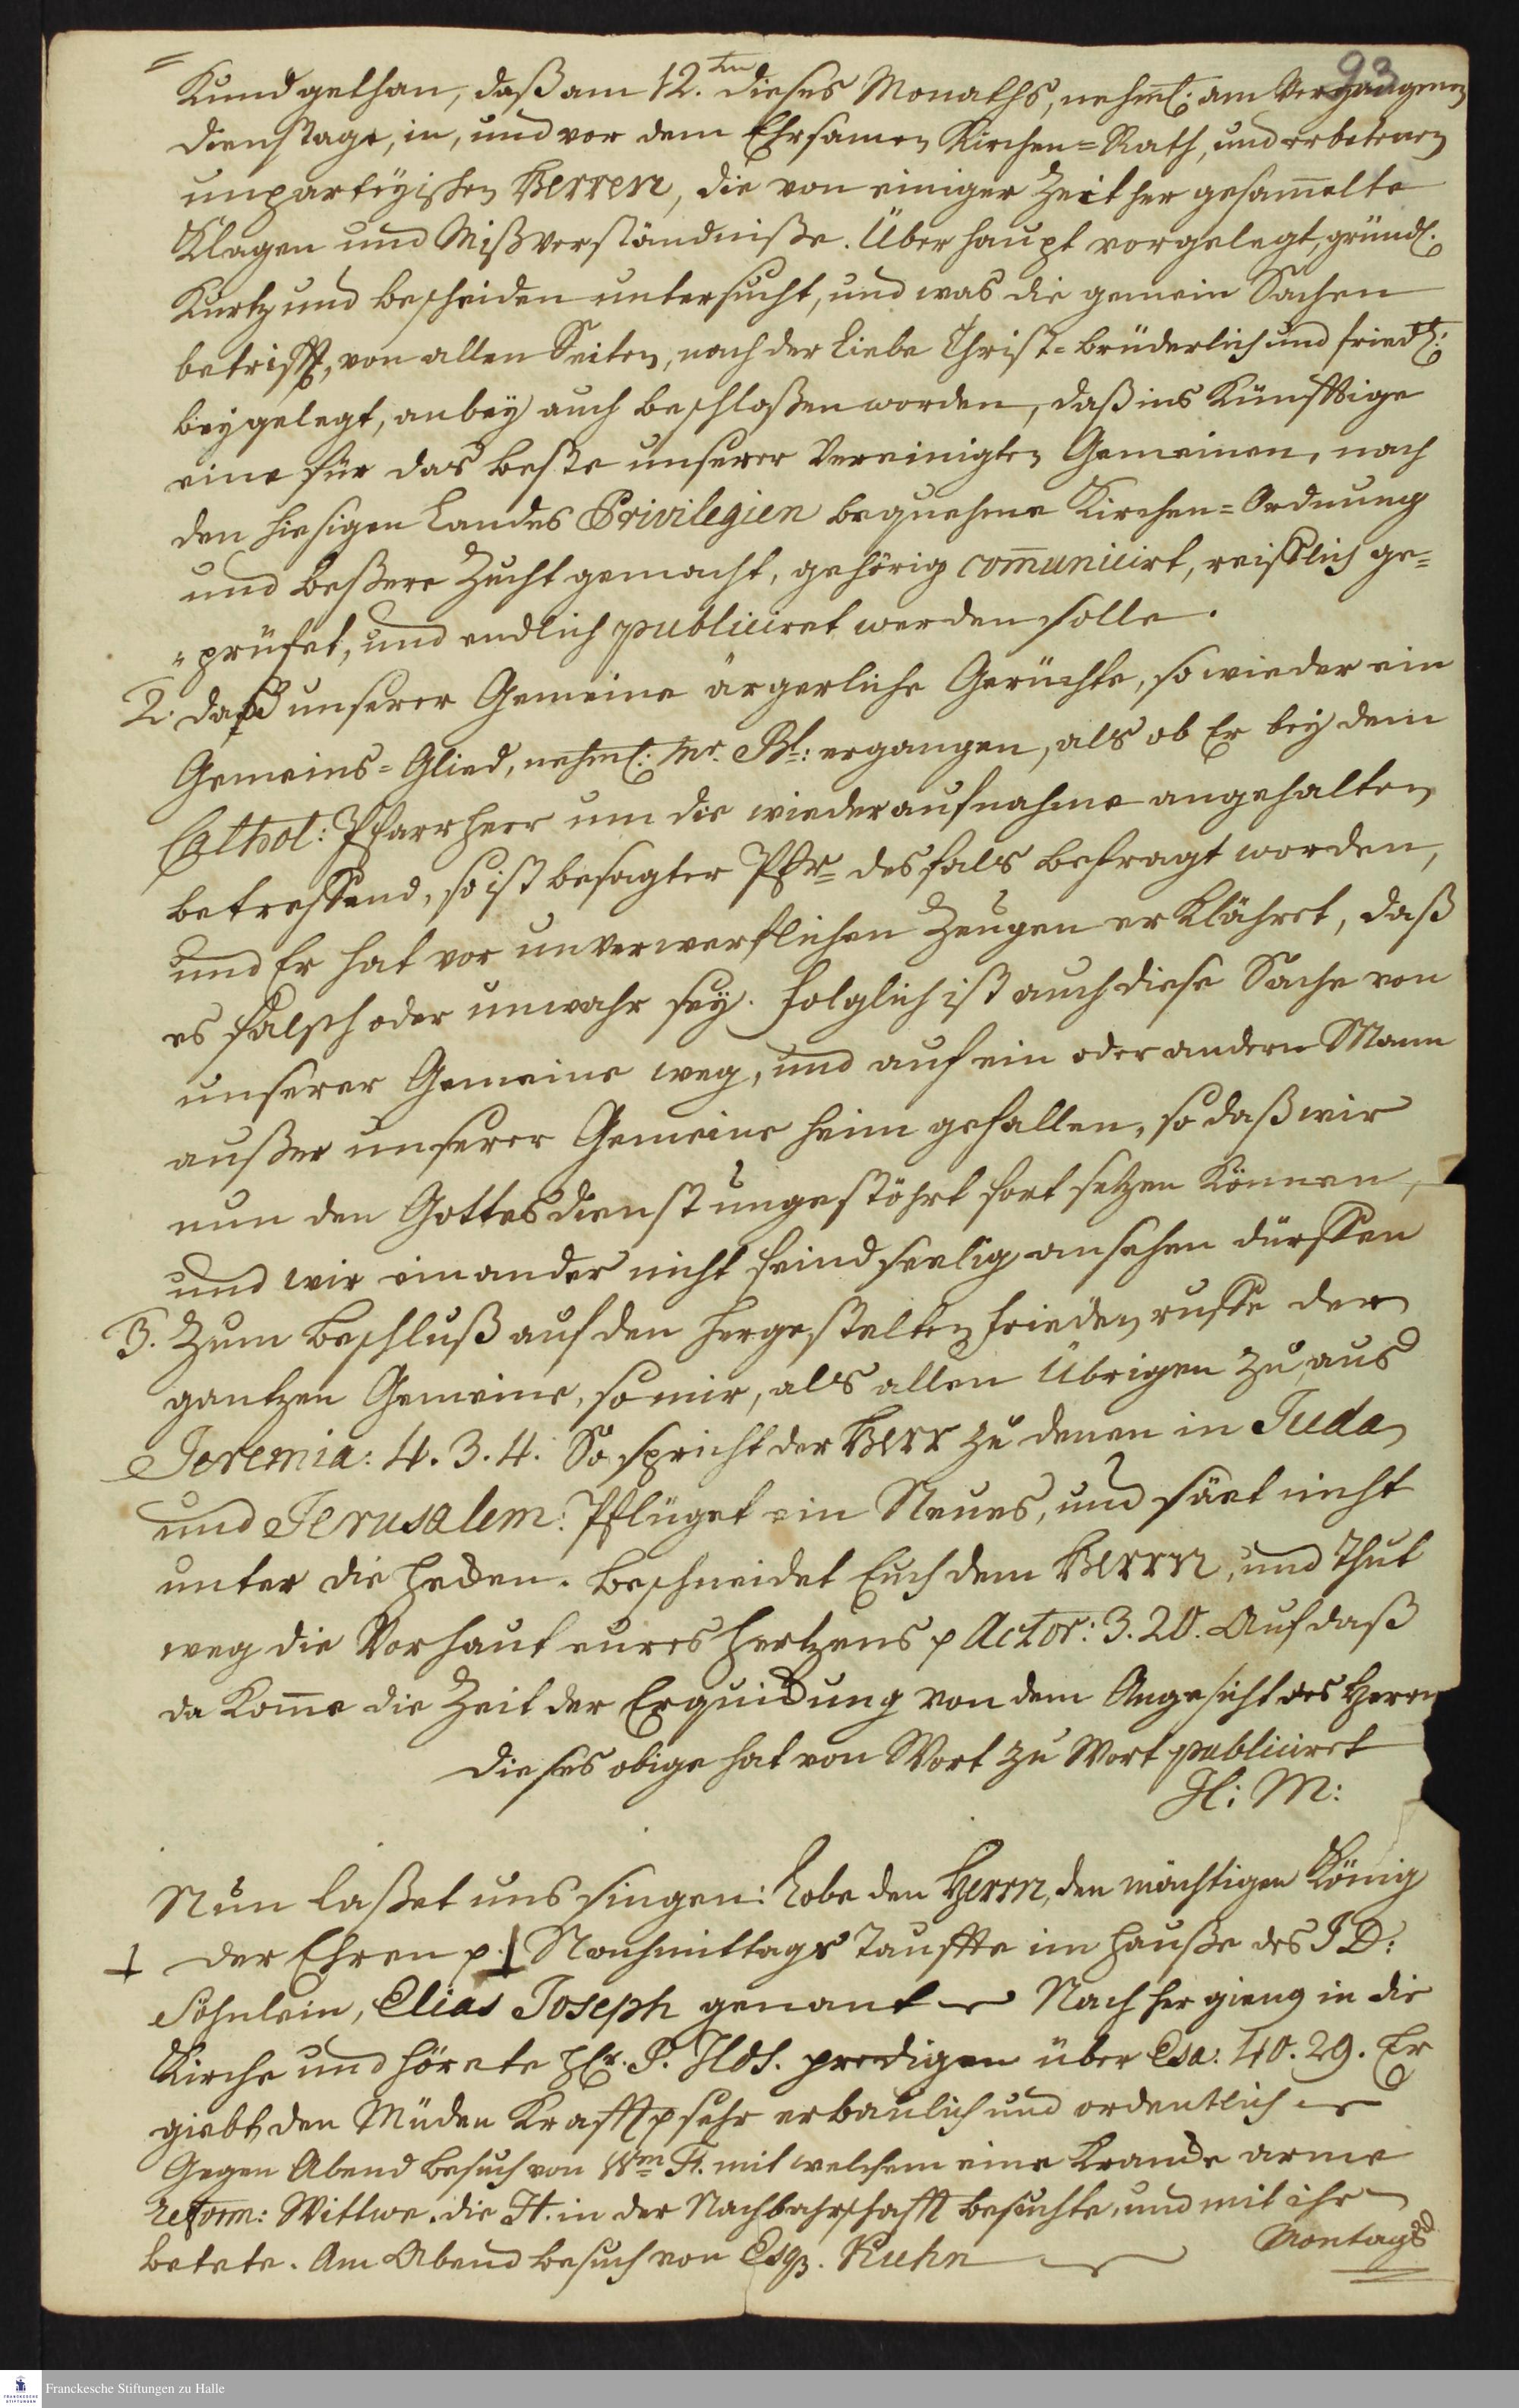 93
= Kund gethan, daß am 12.ten dieses Monaths, nehml: am Vergangenen
Dienstage, in, und vor dem Ehrsamen Kirchen=Rath, und erbetenen
unparteyischen Herren, die von einiger Zeit her gesam̄elte
Klagen und Mißverständniße. Überhaupt vorgelegt, gründl.
Kurtz und bescheiden untersucht, und was die gemein Sachen
betrifft, von allen Seiten, nach der Liebe Christ=brüderlich und friedl:
beygelegt, anbey auch beschloßen worden, daß ins Künfftige
eine für das beste unserer Vereinigten Gemeinen, nach
den hiesigen Landes Privilegien bequehme Kirchen=Ordnung
und beßere Zucht gemacht, gehörig com̄unicirt, reifflich ge=
=prüfet, und endlich publiciret werden solle.
2. daß unserer Gemeine ärgerliche Gerüchte, so wieder ein
Gemeins=Glied, nehml: Mr. Bl: ergangen, als ob Er bey dem
Cathol: Pfarrherr um die wiederaufnahme angehalten
betreffend, so ist besagter Pfr desfals befragt worden,
und Er hat vor unverwerflichen Zeugen er Klähret, daß
es falsch oder unwahr sey. folglich ist auch diese Sache von
unserer Gemeine weg, und auf ein oder andern Mann
außer unserer Gemeine heim gefallen, so daß wir
nun den Gottesdienst ungestöhrt fort setzen können,
und wir einander nicht feindseelig ansehen dürffen
3. Zum Beschluß auf den hergestelten frieden ruffe der
gantzen Gemeine, so mir, als allen Übrigen zu, aus
Jeremia: 4. 3. 4. So spricht der Herr zu denen in Juda
und Jerusalem: Pflüget ein Neues, und säet nicht
unter die Hecken. beschneidet Euch dem Herrn, und thut
weg die Vorhaut eures Hertzens p Actor: 3. 20. Auf daß
da kom̄e die Zeit der Erquickung von dem Angesicht des Herrn
dieses obige hat von Wort zu Wort publiciret
H: M:
Nun laßet uns singen: Lobe den Herrn, den mächtigen König
der Ehren p. Nachmittags Tauffte im Hauße des J D:
Söhnlein, Elias Joseph genant Nach her gieng in die
Kirche und hörete Hr. P. Hds. predigen über Esa: 40. 29. Er
giebt den Müden Krafft p sehr erbaulich und ordentlich
Gegen Abend besuch von Wm F. mit welchem eine krancke arme
reform: Wittwe, die H. in der Nachbahrschafft besuchte, und mit ihr
betete. Am Abend besuch von Esqr. Kuhn
Montags
Franckesche Stiftungen zu Halle